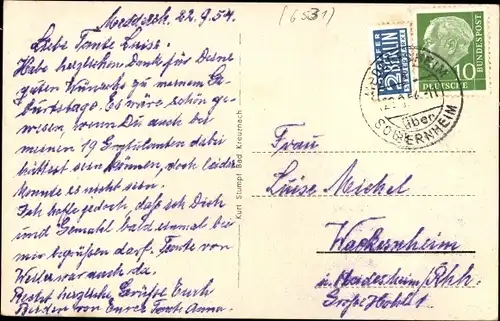 Meddersh. 22.9.54.
(6531)
Liebe Tante Luise.
Habe herzlichen Dank für Deine
guten Wünsche zu meinem Ge-
burtstage. Es wäre schön ge-
wesen, wenn Du auch bei
meinen 19 Gratulanten dabei
hättest sein können, doch leider
konnte es nicht sein.
Ich hoffe jedoch daß ich Dich
und Gemahl bald einmal bei
mir begrüßen darf. Tante von
Weiler war auch da.
Recht herzliche Grüße Euch
Beiden von Eurer Tante Anna.
Kurt Stumpf Bad Kreuznach
2
BERLIN
NOTOPFER
10
DEUTSCHE BUNDESPOST
über
SOBERNHEIM
Frau
Luise Michel
Wackernheim
ü. Heidesheim/Rhh.
Große Hohl 1